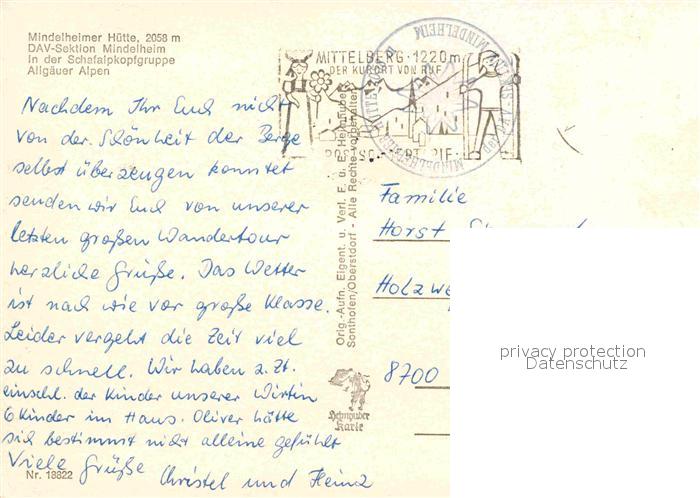 Mindelheimer Hütte, 2058 m
DAV-Sektion Mindelheim
In der Schafalpkopfgruppe
Allgäuer Alpen
MITTELBERG · 1220m
DER KURORT VON RUF
MINDELHEIM
Nachdem Ihr Euch nicht
von der Schönheit der Berge
selbst überzeugen konntet
senden wir Euch von unserer
letzten großen Wandertour
herzliche Grüße. Das Wetter
ist nach wie vor große Klasse.
Leider vergeht die Zeit viel
zu schnell. Wir haben z. Zt.
einschl. der Kinder unserer Wirtin
6 Kinder im Haus. Oliver hätte
sich bestimmt nicht alleine gefühlt
Viele Grüße
Christel und Heinz
Nr. 18822
Orig.-Aufn. Eigent. u. Verl. E. u. E. Heimhuber
Sonthofen/Oberstdorf - Alle Rechte vorbehalten
Heimhuber
Karte
Familie
Horst
Holzwe
8700
privacy protection
Datenschutz